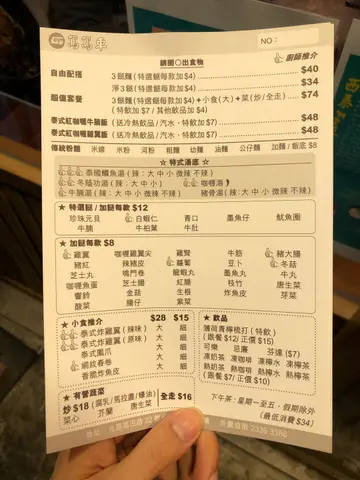 窩窩車
NO：
鍋圈○出食物
廚師推介
自由配搭
3餸麵(特選餸每款加$4)
$40
淨3餸(特選餸每款加$4)
$34
超值套餐
3餸麵(特選餸每款加$4)+小食(大)+菜(炒/全走)
$74
(特飲加$7 / 其他飲品加$4)
泰式紅咖喱牛腩飯
(送冷熱飲品/汽水‧特飲加$7)
$48
泰式紅咖喱雞翼飯
(送冷熱飲品/汽水‧特飲加$7)
$48
傳統粉麵 米線 米粉 河粉 粗麵 幼麵 油麵 公仔麵 加麵/飯底 $8
☆特式湯底☆
泰國鱔魚湯(辣：大中小微辣不辣)
冬蔭功湯(辣：大中小) 咖喱湯
牛腩湯(辣：大中小微辣不辣) 豬骨湯(辣：大中小微辣不辣)
★特選餸 / 加餸每款 $12
珍珠元貝 白蝦仁 青口 墨魚仔 魷魚圈
牛腩 牛柏葉 牛肚
★加餸每款 $8
雞翼 咖喱雞翼尖 雞腎 牛筋 豬大腸
豬紅 辣豬皮 蘿蔔 豆卜 冬菇
芝士丸 鳴門卷 龍蝦丸 墨魚丸 牛丸
咖喱魚蛋 芝士腸 枝竹 唐生菜
響鈴 紅腸 生根 炸魚皮 芽菜
酸菜 腸仔 紫菜
★小食推介 $28 $15
泰式炸雞翼(辣味) 大 細
泰式炸雞翼(原味) 大 細
泰式鳳爪 大 細
網紋春卷 大 細
香脆炸魚皮 大 細
★飲品
薄荷青檸梳打(特飲)
(跟餐$12/正價$15)
可樂 忌廉 芬達 ($7)
凍奶茶 凍咖啡 凍檸水 凍檸茶
熱奶茶 熱咖啡 熱檸水 熱檸茶
(跟餐 $7/ 正價 $10)
★有營蔬菜
炒 $18 (腐乳/馬拉盞/蠔油)
全走 $16
菜心 芥蘭 唐生菜
下午茶：星期一至五‧假期除外
(最低消費 $34)